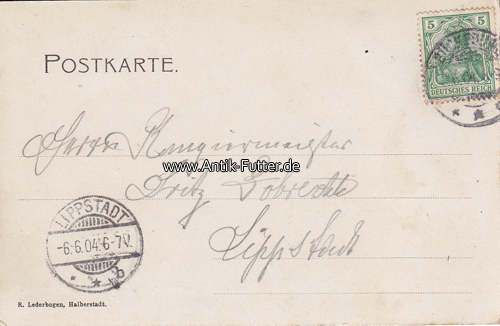 5 5
DEUTSCHES REICH
POSTKARTE.
Herrn Rangiermeister
www.Antik-Futter.de
Fritz
Lippstadt
LIPPSTADT
-6.6.04.6-7V.
R. Lederbogen, Halberstadt.